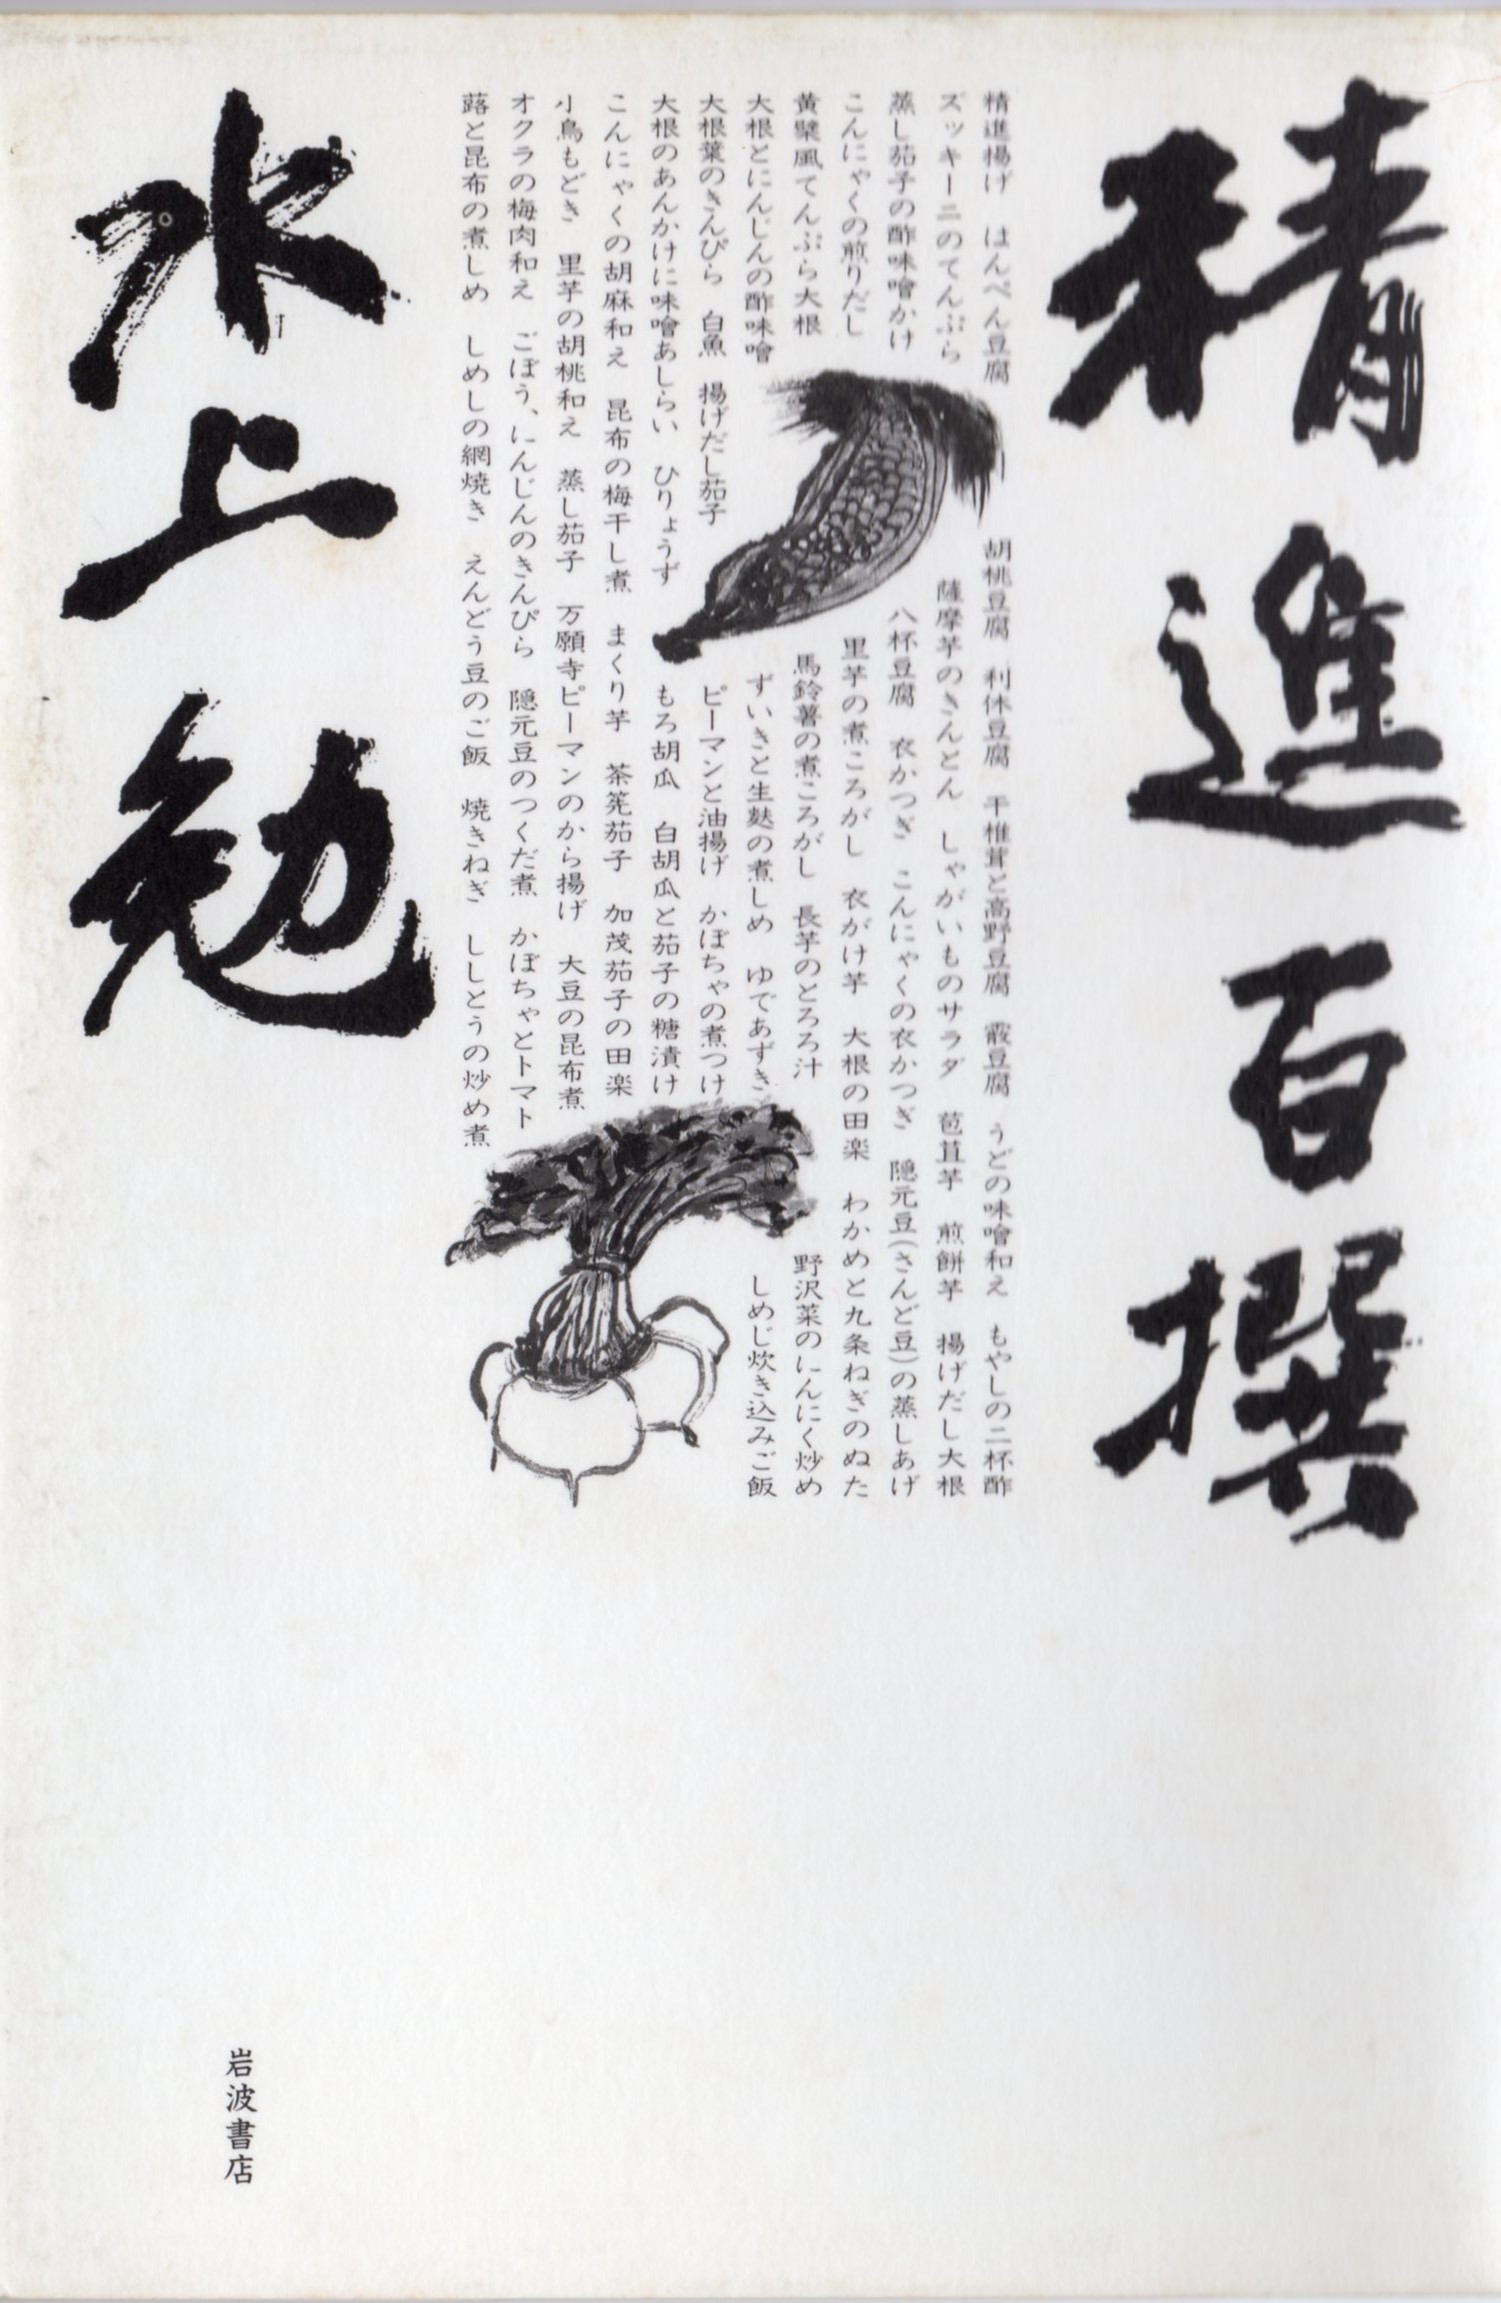 精進百撰
精進揚げ　はんぺん豆腐　胡桃豆腐　利休豆腐　干椎茸と高野豆腐　霰豆腐　うどの味噌和え　もやしの二杯酢
ズッキーニのてんぷら　薩摩芋のきんとん　しゃがいものサラダ　苞苴芋　煎餅芋　揚げだし大根
蒸し茄子の酢味噌かけ　八杯豆腐　衣かつぎ　こんにゃくの衣かつぎ　隠元豆(さんど豆)の蒸しあげ
こんにゃくの煎りだし　里芋の煮ころがし　衣がけ芋　大根の田楽　わかめと九条ねぎのぬた
黄檗風てんぷら大根　馬鈴薯の煮ころがし　長芋のとろろ汁　野沢菜のにんにく炒め
大根とにんじんの酢味噌　ずいきと生麸の煮しめ　ゆであずき　しめじ炊き込みご飯
大根葉のきんぴら　白魚　揚げだし茄子　ピーマンと油揚げ　かぼちゃの煮つけ
大根のあんかけに味噌あしらい　ひりょうず　もろ胡瓜　白胡瓜と茄子の糖漬け
こんにゃくの胡麻和え　昆布の梅干し煮　まくり芋　茶筅茄子　加茂茄子の田楽
小鳥もどき　里芋の胡桃和え　蒸し茄子　万願寺ピーマンのから揚げ　大豆の昆布煮
オクラの梅肉和え　ごぼう、にんじんのきんぴら　隠元豆のつくだ煮　かぼちゃとトマト
蕗と昆布の煮しめ　しめしの網焼き　えんどう豆のご飯　焼きねぎ　ししとうの炒め煮
水上勉
岩波書店